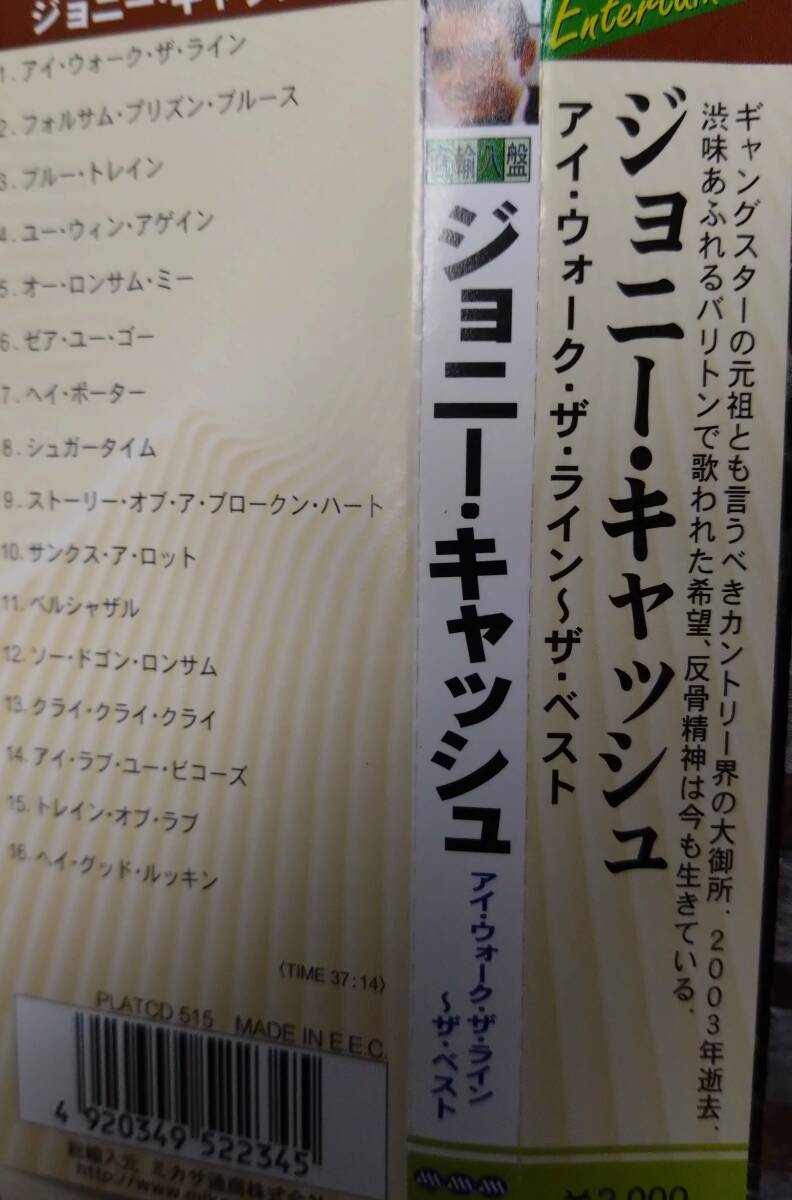 ジョニー・キャッシュ
1. アイ・ウォーク・ザ・ライン
2. フォルサム・プリズン・ブルース
3. ブルー・トレイン
4. ユー・ウィン・アゲイン
5. オー・ロンサム・ミー
6. ゼア・ユー・ゴー
7. ヘイ・ポーター
8. シュガータイム
9. ストーリー・オブ・ア・ブロークン・ハート
10. サンクス・ア・ロット
11. ベルシャザル
12. ソー・ドゴン・ロンサム
13. クライ・クライ・クライ
14. アイ・ラブ・ユー・ビコーズ
15. トレイン・オブ・ラブ
16. ヘイ・グッド・ルッキン
〈TIME 37:14〉
PLATCD 515 MADE IN E.E.C.
4 920349 522345
総輸入元 ミカサ通商株式会社
直輸入盤
ジョニー・キャッシュ
アイ・ウォーク・ザ・ライン
～ザ・ベスト
ギャングスターの元祖とも言うべきカントリー界の大御所．2003年逝去、
渋味あふれるバリトンで歌われた希望、反骨精神は今も生きている．
ジョニー・キャッシュ
アイ・ウォーク・ザ・ライン～ザ・ベスト